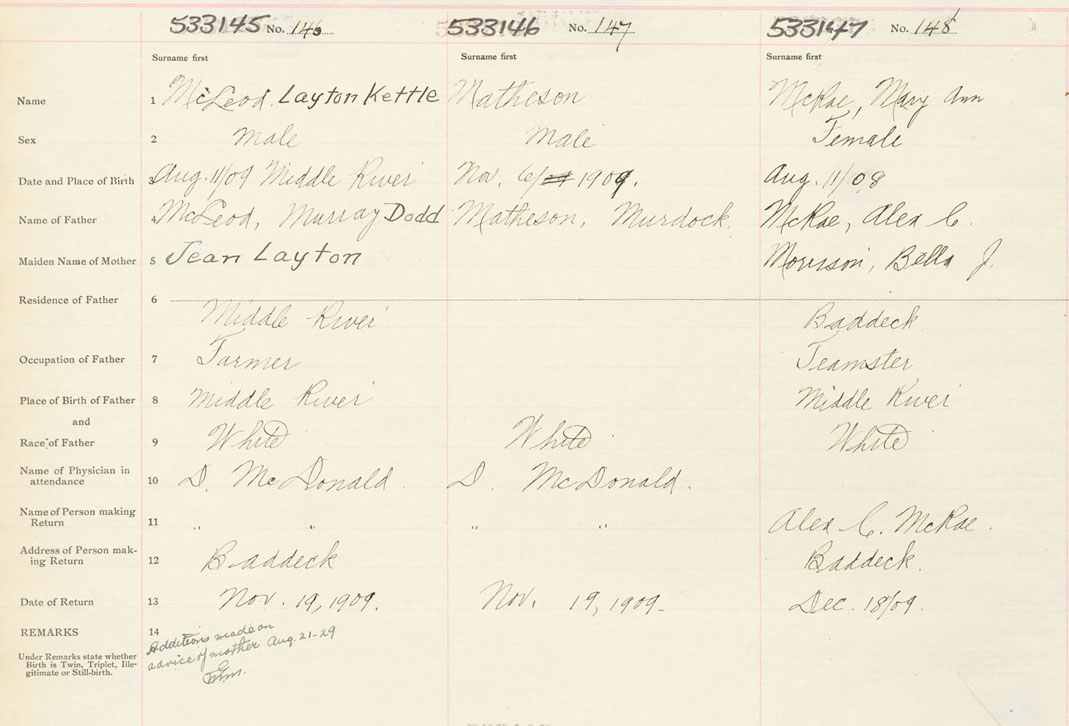 533145 No. 146 533146 No. 147 533147 No. 148
Surname first Surname first Surname first
Name 1 McLeod, Layton Kettle Matheson McRae, Mary Ann
Sex 2 Male Male Female
Date and Place of Birth 3 Aug. 11/09 Middle River Nov. 6/ 1909. Aug. 11/08
Name of Father 4 McLeod, Murray Dodd Matheson, Murdock. McRae, Alex C.
Maiden Name of Mother 5 Jean Layton Morrison, Bella J.
Residence of Father 6
Middle River Baddeck
Occupation of Father 7 Farmer Teamster
Place of Birth of Father 8 Middle River Middle River
and
Race of Father 9 White White White
Name of Physician in
attendance 10 D. McDonald. D. McDonald.
Name of Person making
Return 11 " " " " Alex C. McRae.
Address of Person mak-
ing Return 12 Baddeck Baddeck.
Date of Return 13 Nov. 19, 1909. Nov. 19, 1909. Dec. 18/09.
REMARKS 14
Additions made on
advice of mother Aug. 21-29
Under Remarks state whether
Birth is Twin, Triplet, Ille-
gitimate or Still-birth.